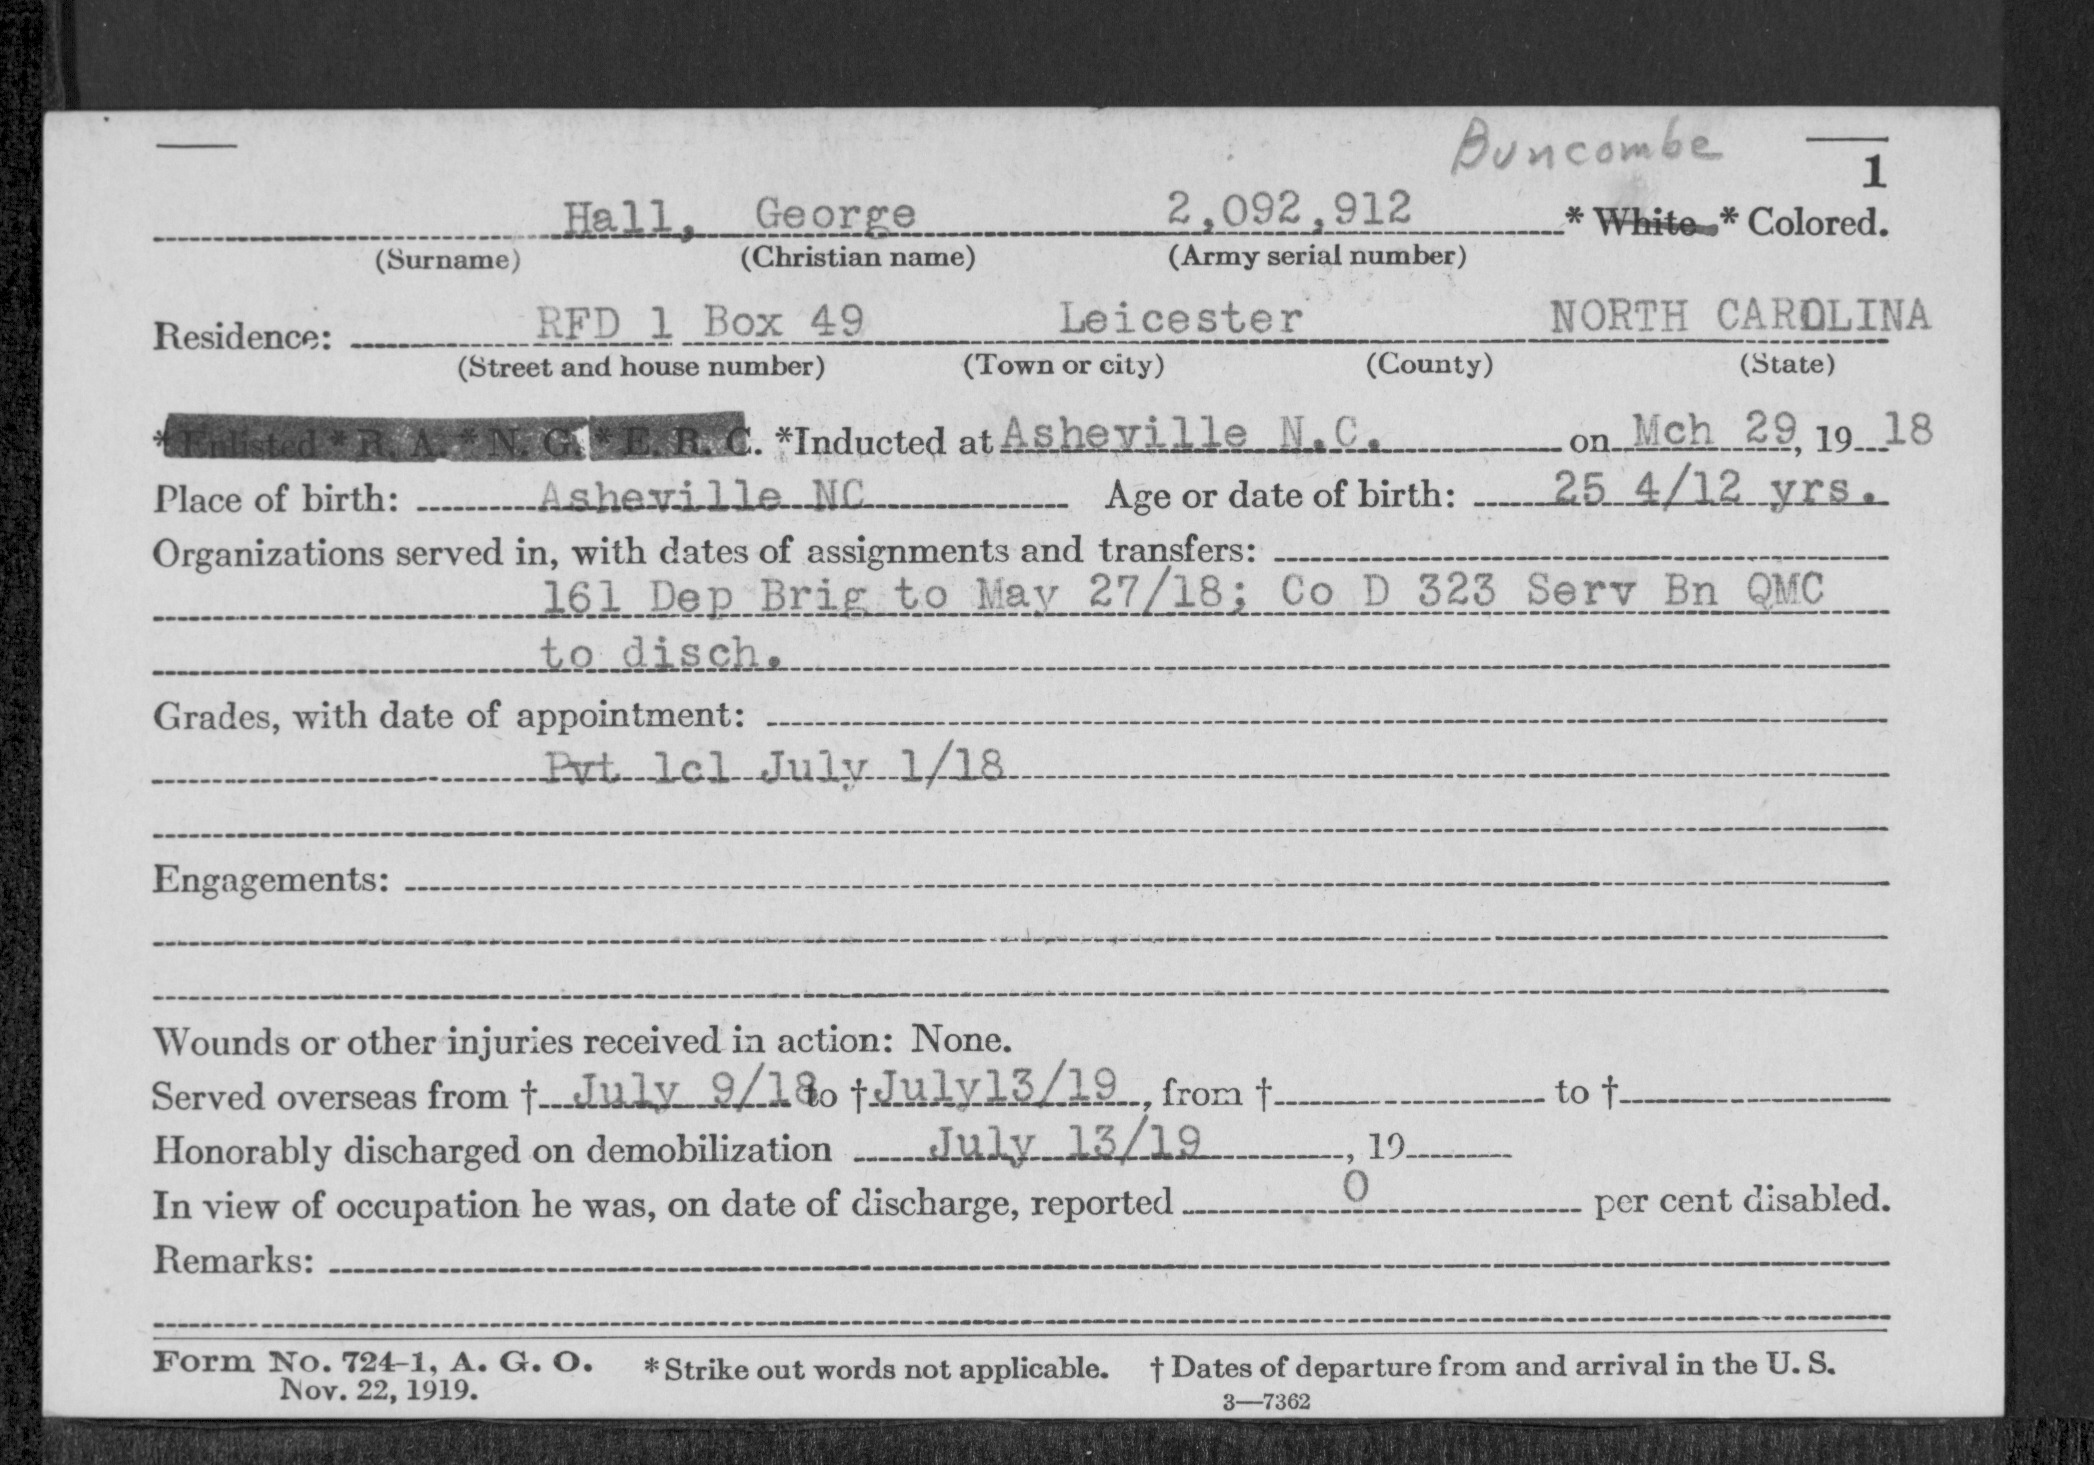 Buncombe
1
Hall, George 2,092,912 * White * Colored.
(Surname) (Christian name) (Army serial number)
Residence: RFD 1 Box 49 Leicester NORTH CAROLINA
(Street and house number) (Town or city) (County) (State)
* Enlisted * R. A. * N. G. * E. R. C. *Inducted at Asheville N.C. on Mch 29, 1918
Place of birth: Asheville NC Age or date of birth: 25 4/12 yrs.
Organizations served in, with dates of assignments and transfers:
161 Dep Brig to May 27/18; Co D 323 Serv Bn QMC
to disch.
Grades, with date of appointment:
Pvt 1cl July 1/18
Engagements:
Wounds or other injuries received in action: None.
Served overseas from † July 9/18 to † July13/19, from † to †
Honorably discharged on demobilization July 13/19, 19
In view of occupation he was, on date of discharge, reported 0 per cent disabled.
Remarks:
Form No. 724-1, A. G. O. * Strike out words not applicable. † Dates of departure from and arrival in the U. S.
Nov. 22, 1919. 3—7362